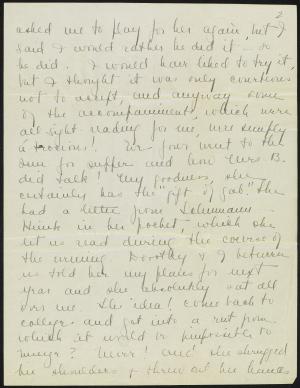 2
asked me to play for her again, but I
said I would rather he did it - so
he did. I would have liked to try it,
but I thought it was only courteous
not to accept, and anyway some
of the accompaniments, which were
all sight reading for me, were simply
atrocious! We four went to the
Inn for supper and how Mrs. B.
did talk! My goodness, she
certainly has the "gift of gab." She
had a letter from Schumann-
Heink in her pocket, which she
let us read during the course of
the evening. Dorothy & I between
us told her my plans for next
year and she absolutely sat all
over me. The idea! come back to
college and get into a rut from
which it would be impossible to
emerge? Never! and she shrugged
her shoulders & threw out her hands